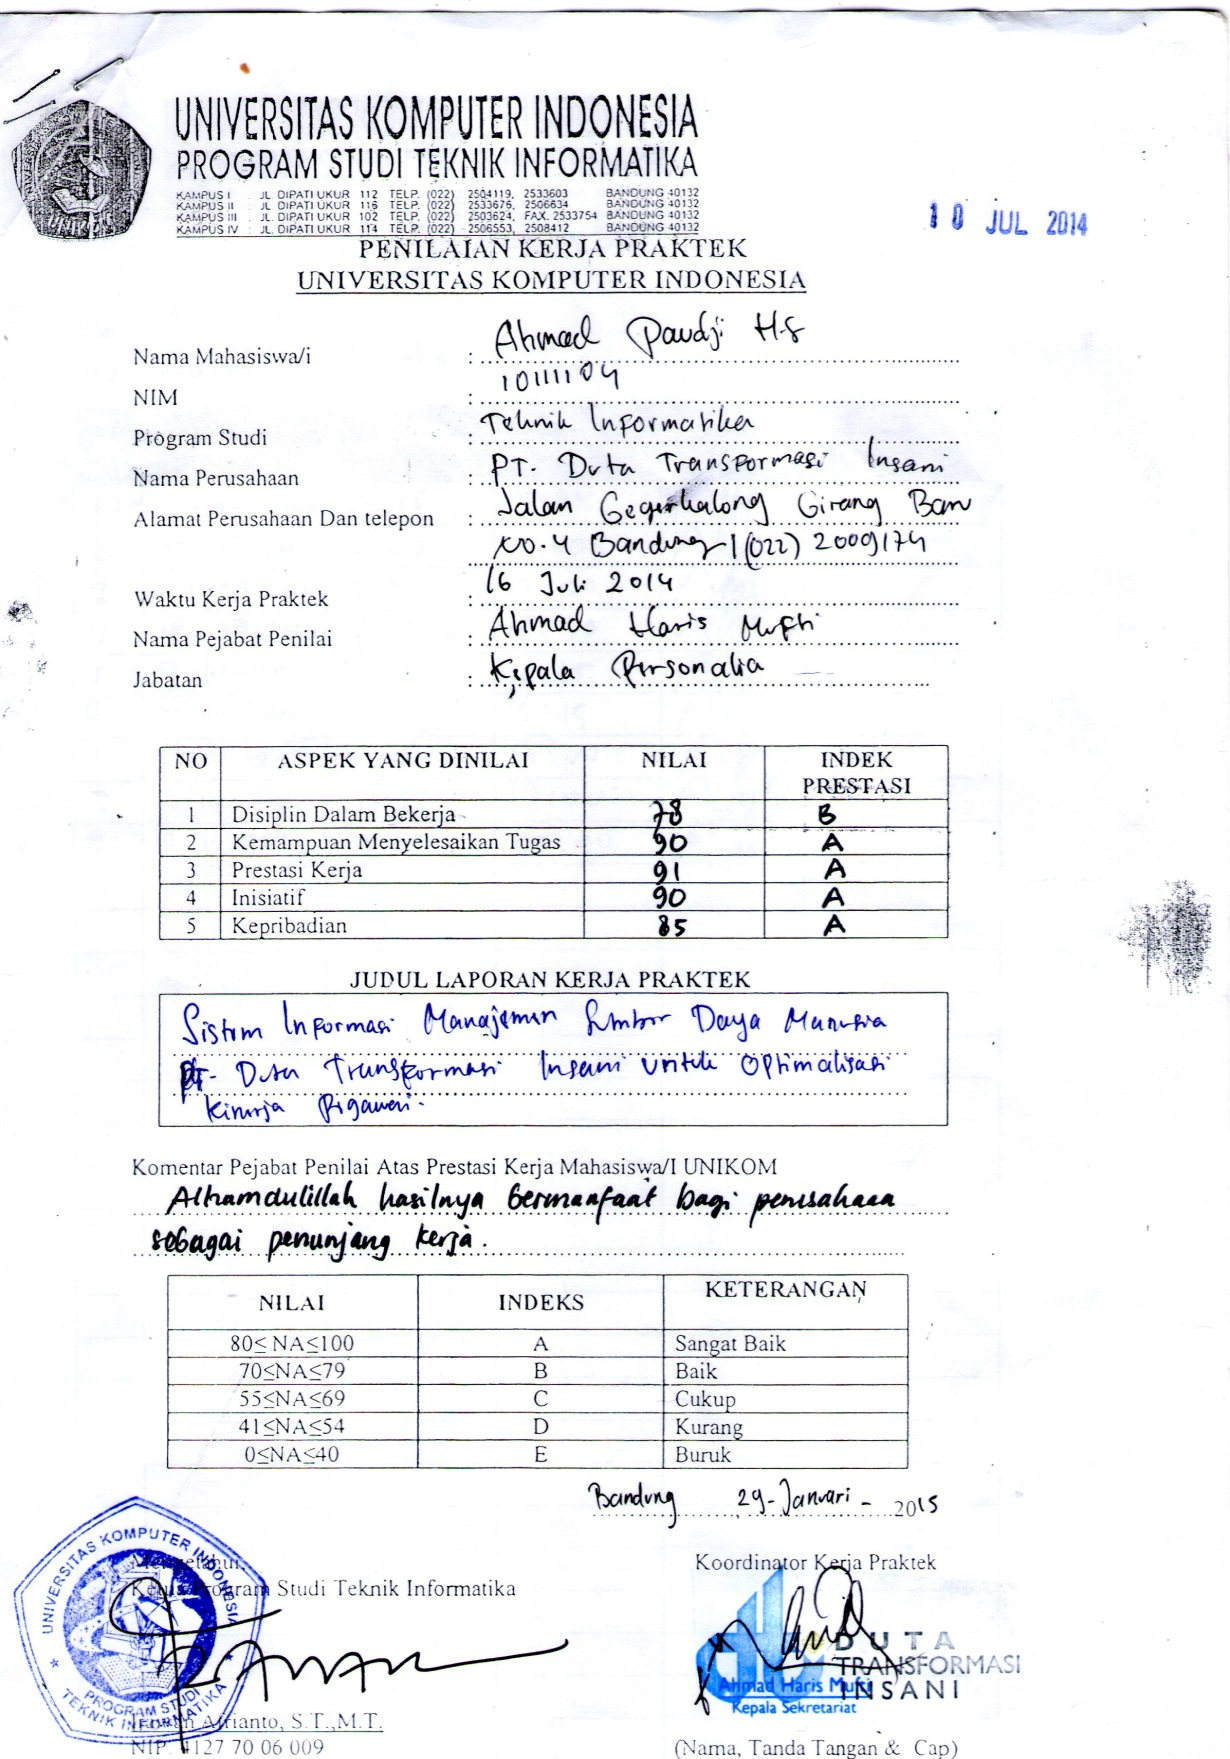 UNIVERSITAS KOMPUTER INDONESIA
PROGRAM STUDI TEKNIK INFORMATIKA
KAMPUS I : JL. DIPATI UKUR 112 TELP. (022) 2504119, 2533603 BANDUNG 40132
KAMPUS II : JL DIPATI UKUR 116 TELP. (022) 2533676, 2506634 BANDUNG 40132
KAMPUS III : JL. DIPATI UKUR 102 TELP. (022) 2503624, FAX. 2533754 BANDUNG 40132
KAMPUS IV : JL. DIPATI UKUR 114 TELP. (022) 2506553, 2508412 BANDUNG 40132
10 JUL 2014
PENILAIAN KERJA PRAKTEK
UNIVERSITAS KOMPUTER INDONESIA
Nama Mahasiswa/i : Ahmad Paudji H.S
NIM : 10111104
Program Studi : Teknik Informatika
Nama Perusahaan : PT. Duta Transformasi Insani
Alamat Perusahaan Dan telepon : Jalan Gegerkalong Girang Baru
No. 4 Bandung / (022) 2009174
Waktu Kerja Praktek : 16 Juli 2014
Nama Pejabat Penilai : Ahmad Haris Mufti
Jabatan : Kepala Personalia
NO ASPEK YANG DINILAI NILAI INDEK PRESTASI
1 Disiplin Dalam Bekerja 78 B
2 Kemampuan Menyelesaikan Tugas 90 A
3 Prestasi Kerja 91 A
4 Inisiatif 90 A
5 Kepribadian 85 A
JUDUL LAPORAN KERJA PRAKTEK
Sistem Informasi Manajemen Sumber Daya Manusia
PT. Duta Transformasi Insani untuk Optimalisasi
Kinerja Pegawai.
Komentar Pejabat Penilai Atas Prestasi Kerja Mahasiswa/I UNIKOM
Alhamdulillah hasilnya bermanfaat bagi perusahaan
sebagai penunjang kerja.
NILAI INDEKS KETERANGAN
80≤ NA≤100 A Sangat Baik
70≤NA≤79 B Baik
55≤NA≤69 C Cukup
41≤NA≤54 D Kurang
0≤NA≤40 E Buruk
Bandung, 29-Januari-2015
Mengetahui,
Ketua Program Studi Teknik Informatika
Koordinator Kerja Praktek
UNIVERSITAS KOMPUTER INDONESIA
PROGRAM STUDI
TEKNIK INFORMATIKA
DUTA
TRANSFORMASI
INSANI
Ahmad Haris Mufti
Kepala Sekretariat
Afrianto, S.T.,M.T.
NIP. 4127 70 06 009
(Nama, Tanda Tangan & Cap)